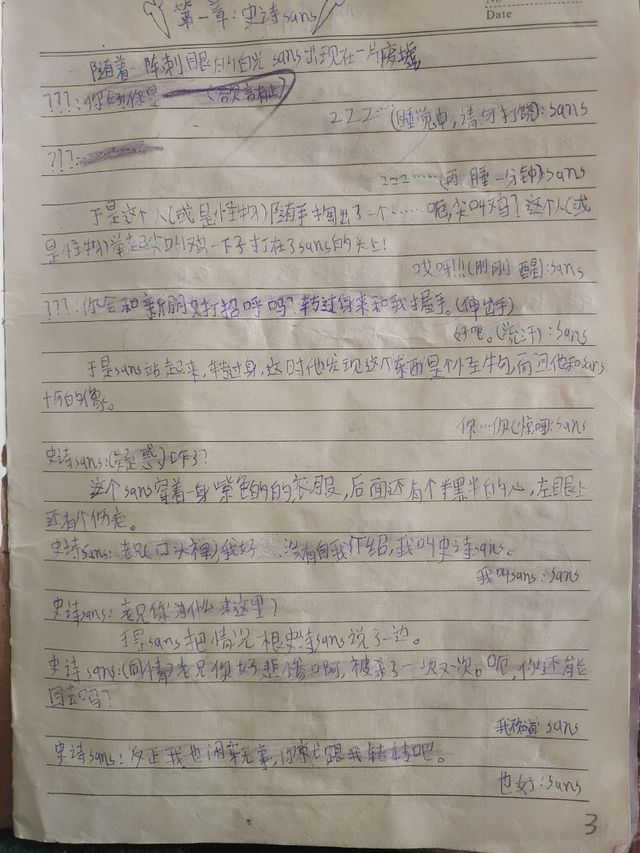 No
Date
第一章:史诗sans
随着一阵刺眼的白光 sans出现在一片废墟,
???:你好,你是
ZZZ……(睡觉中,请勿打扰):sans
???:
zzz……(再睡一分钟):sans
于是这个人(或是怪物)随手掏出了一个……呃,尖叫鸡?这个人(或
是怪物)举起尖叫鸡一下子打在了sans的头上!
哎呀!!!(刚刚醒):sans
???:你会和新朋友打招呼吗?转过身来和我握手。(伸出手)
好吧。(流汗):sans
于是sans站起来,转过身,这时他发现这个东西是个小至,而且他和sans
十分的像。
你…你:sans
史诗sans:(疑惑)咋了?
这个sans穿着一身紫色的的衣服,后面还有个半黑半白的心,左眼上
还有个伤疤。
史诗sans:老兄(口头禅)我好 没有自我介绍,我叫史诗sans。
我叫sans:sans
史诗sans:老兄你为什么来这里?
于是sans把情况根史诗sans说了一边。
史诗sans:(同情)老兄你好悲惨啊,被杀了一次又一次。呃,你还有能
回去吗?
我:sans
史诗sans:反正我也闲来无事,你就跟我转转吧。
也好:sans
3